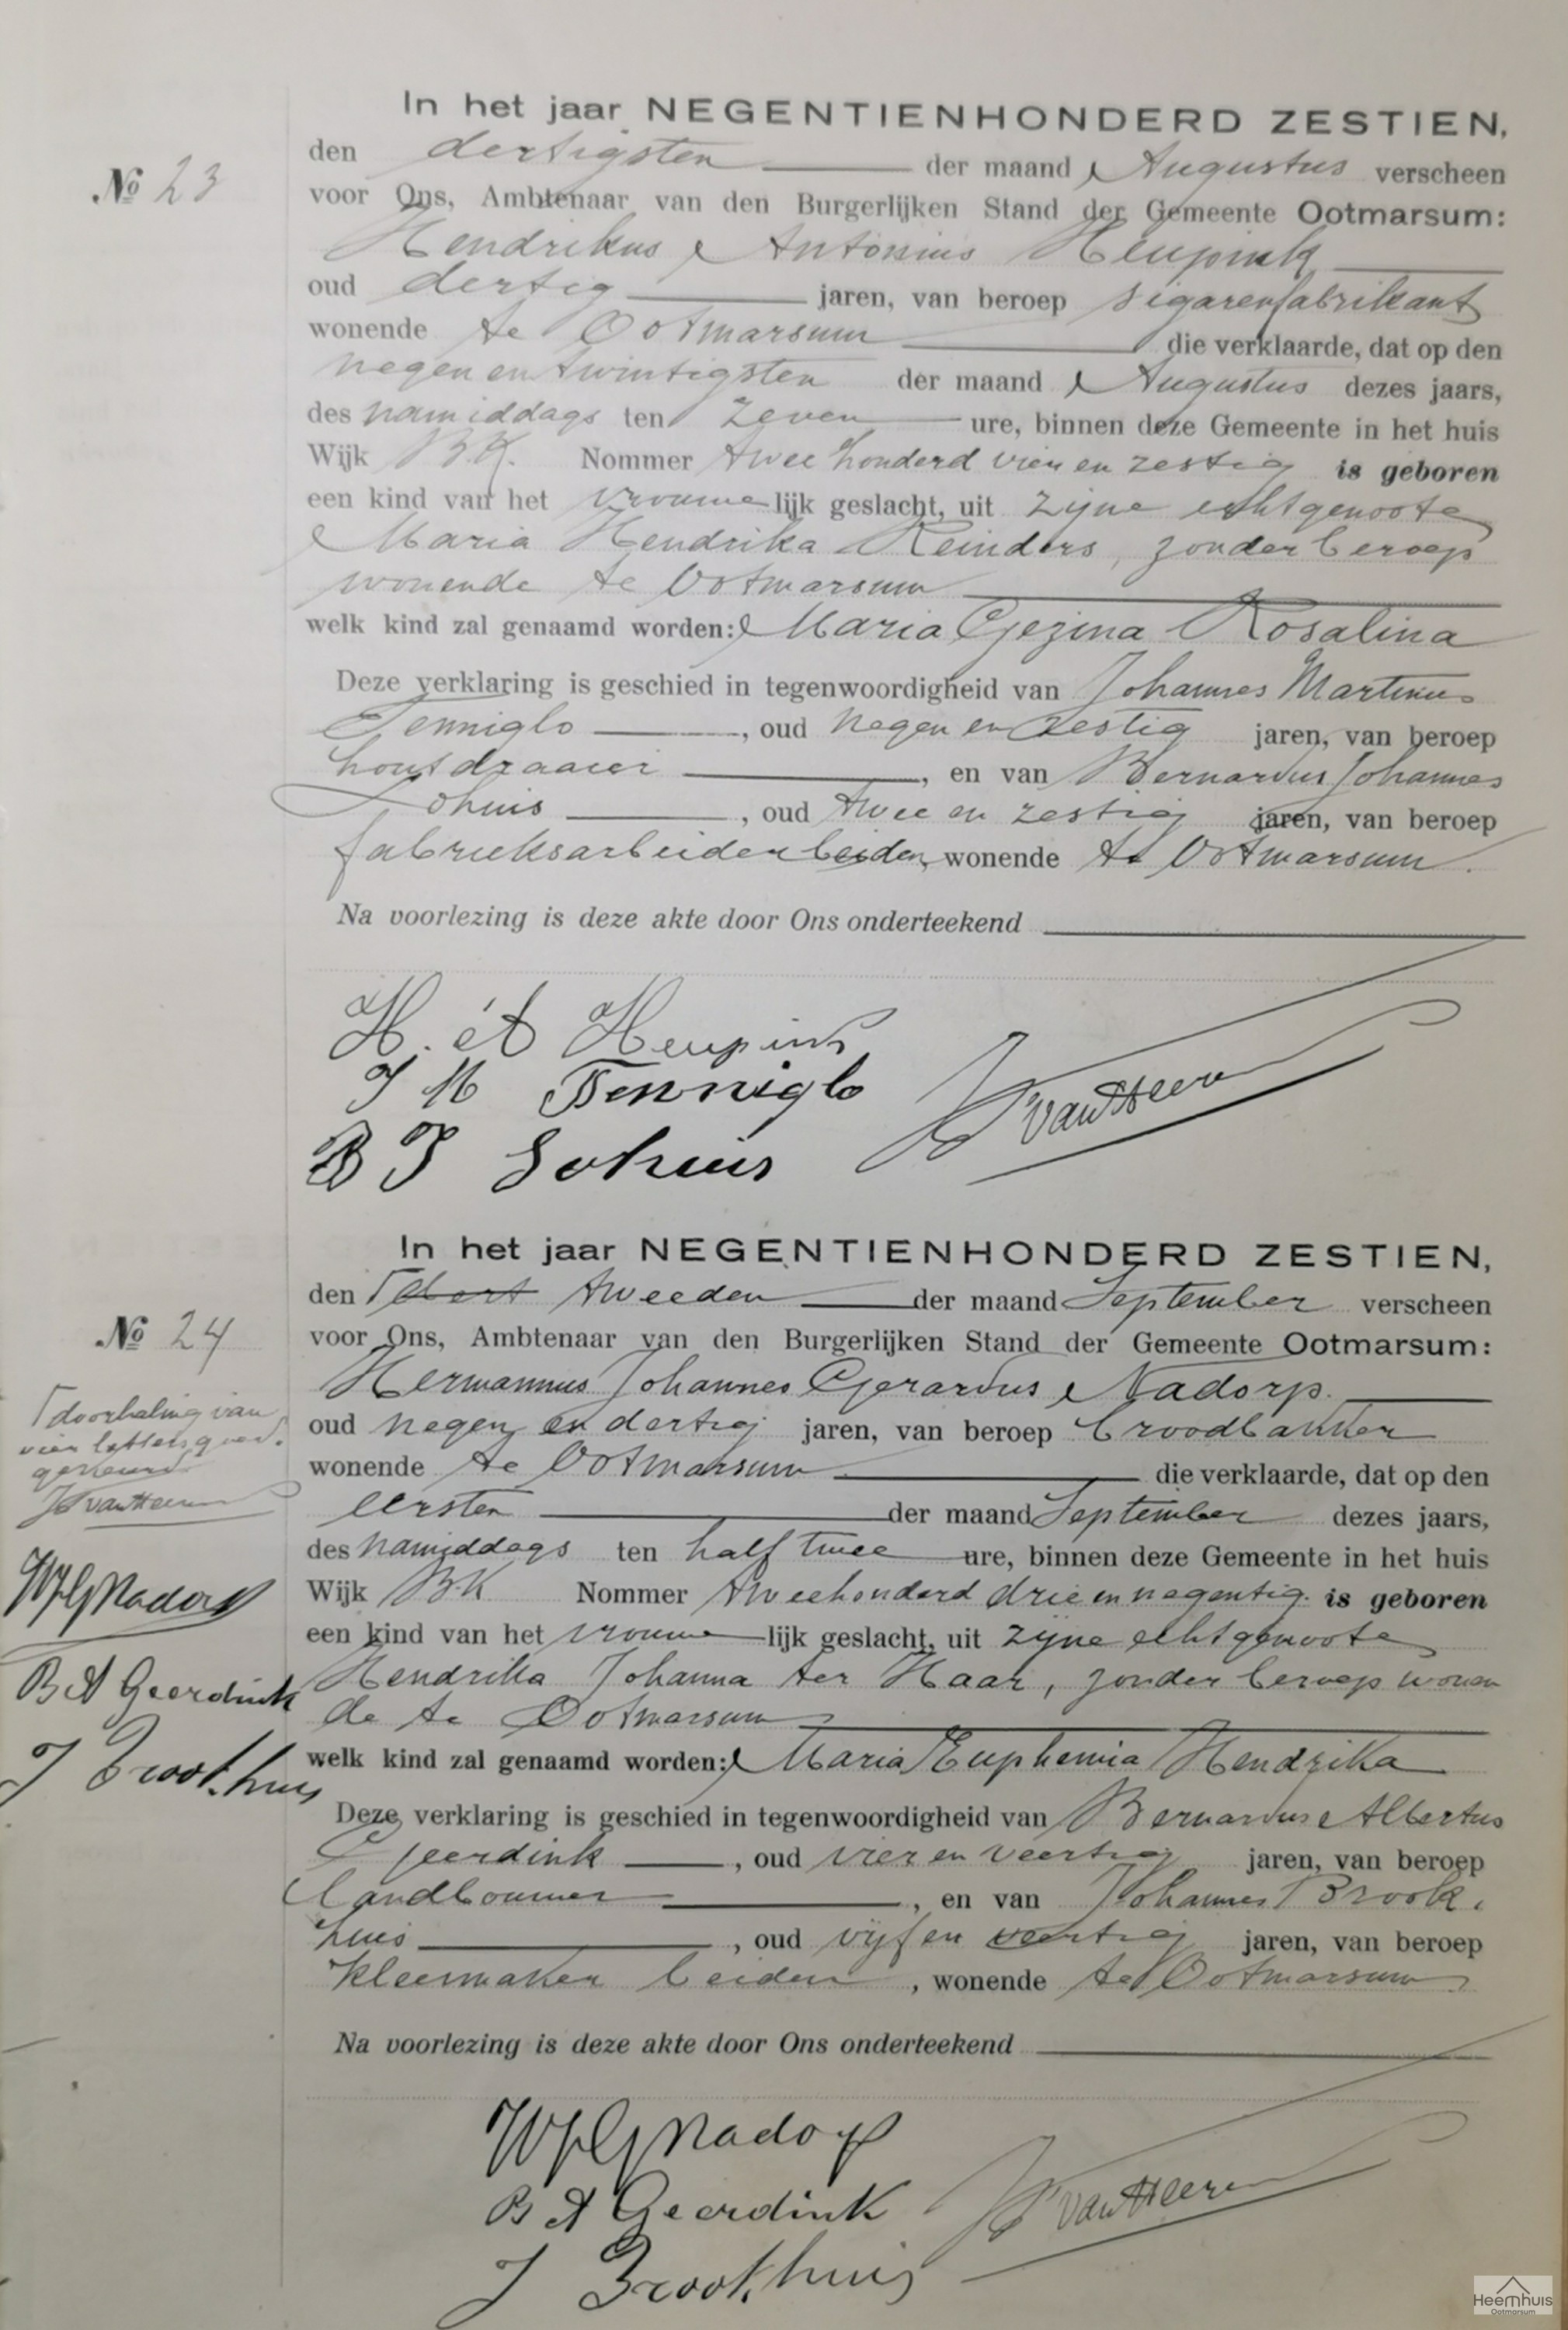 In het jaar NEGENTIENHONDERD ZESTIEN,
№ 23
den dertigsten der maand Augustus verscheen
voor Ons, Ambtenaar van den Burgerlijken Stand der Gemeente Ootmarsum:
Hendrikus Antonius Heupink
oud dertig jaren, van beroep sigarenfabrikant
wonende te Ootmarsum die verklaarde, dat op den
negen en twintigsten der maand Augustus dezes jaars,
des namiddags ten zeven ure, binnen deze Gemeente in het huis
Wijk B.K. Nommer twee honderd vier en zestig is geboren
een kind van het vrouwelijk geslacht, uit zijne echtgenoote
Maria Hendrika Reinders, zonder beroep
wonende te Ootmarsum
welk kind zal genaamd worden: Maria Gezina Rosalina
Deze verklaring is geschied in tegenwoordigheid van Johannes Martinus
Tenniglo, oud negen en zestig jaren, van beroep
houtdraaier, en van Bernardus Johannes
Lohuis, oud twee en zestig jaren, van beroep
fabrieksarbeider beiden, wonende te Ootmarsum.
Na voorlezing is deze akte door Ons onderteekend
H. A Heupink
J M Tenniglo
B J Lohuis
van Heeren
In het jaar NEGENTIENHONDERD ZESTIEN,
№ 24
den tweeden der maand September verscheen
voor Ons, Ambtenaar van den Burgerlijken Stand der Gemeente Ootmarsum:
Hermannus Johannes Gerardus Nadorp.
oud negen en dertig jaren, van beroep broodbakker
wonende te Ootmarsum die verklaarde, dat op den
eersten der maand September dezes jaars,
des namiddags ten half twee ure, binnen deze Gemeente in het huis
Wijk B.K Nommer tweehonderd drie en negentig. is geboren
een kind van het vrouwelijk geslacht, uit zijne echtgenoote
Hendrika Johanna ter Haar, zonder beroep wonen
de te Ootmarsum
welk kind zal genaamd worden: Maria Euphemia Hendrika
Deze verklaring is geschied in tegenwoordigheid van Bernardus Albertus
Geerdink, oud vier en veertig jaren, van beroep
landbouwer, en van Johannes Brook-
huis, oud vijf en veertig jaren, van beroep
kleermaker beiden, wonende te Ootmarsum
Na voorlezing is deze akte door Ons onderteekend
doorhaling van
vier letters goed-
gekeurd
van Heeren
HJG Nadorp
B A Geerdink
J Brookhuis
HJG Nadorp
B A Geerdink
J Brookhuis
van Heeren
Heemhuis
Ootmarsum